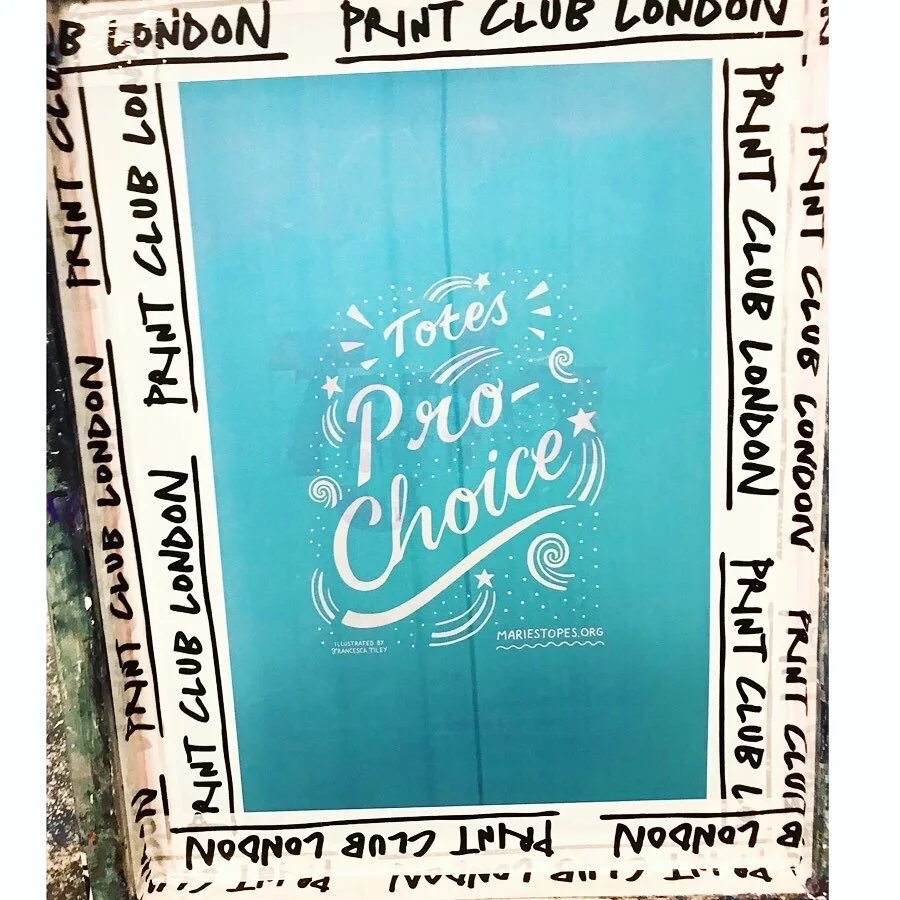 B LONDON
PRINT CLUB LONDON
PRINT CLUB
PRINT CLUB LONDON
PRINT CLUB LONDON
PRINT CLUB LONDON
PRINT CLUB LONDON
Totes
Pro-
Choice
ILLUSTRATED BY
FRANCESCA TILEY
MARIESTOPES.ORG
PRINT CLUB LONDON
PRINT CLUB
PRINT CLUB LONDON
PRINT CLUB
PRINT CLUB LONDON
LONDON
PRINT CLUB LONDON
PRINT CLUB